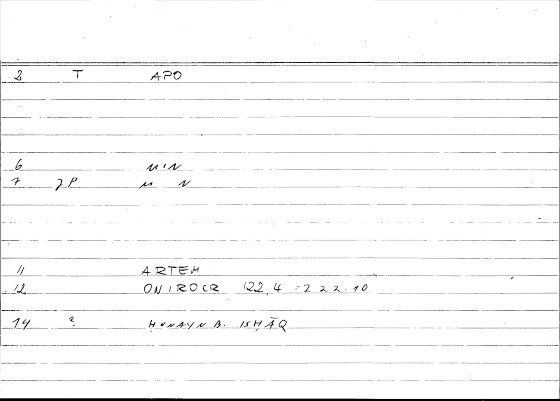 2 T APO
6 MIN
7 JP M N
11 ARTEM
12 ONIROCR 122,4 = 222.10
14 ? ḤUNAYN B. ISḤĀQ